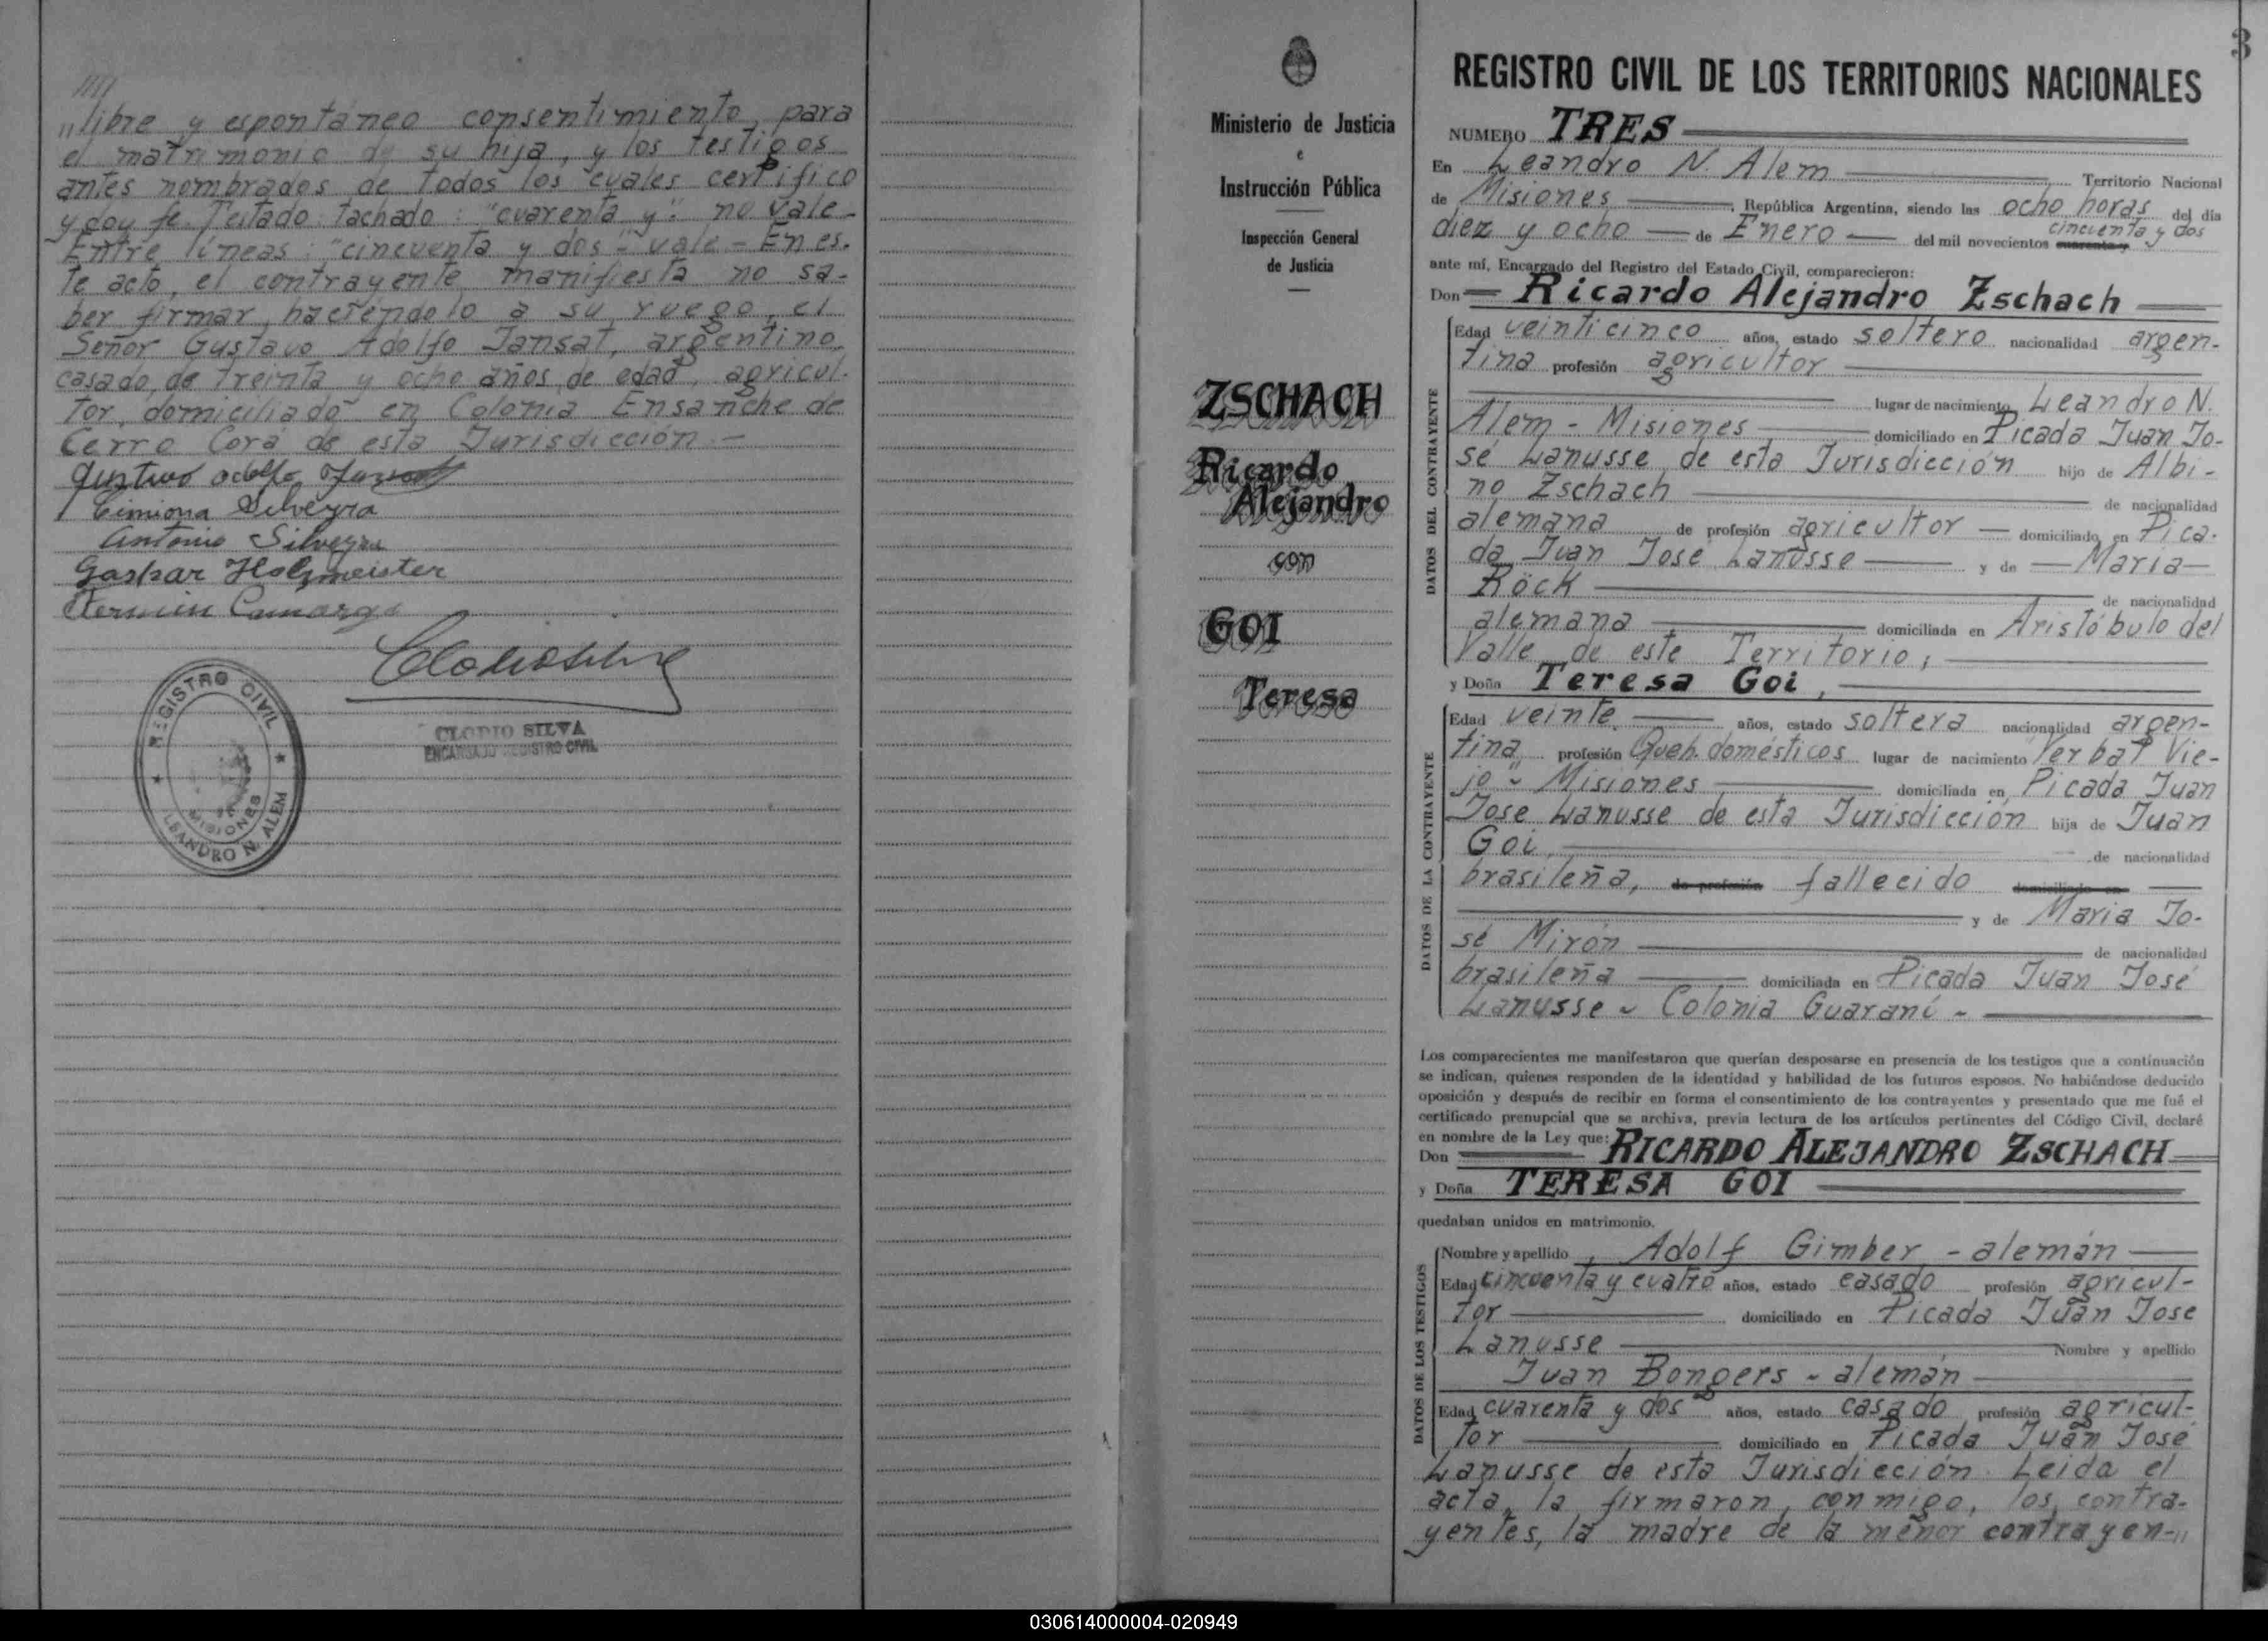 ////
"libre y espontáneo consentimiento para
el matrimonio de su hija, y los testigos
antes nombrados de todos los cuales certifico
y doy fe. Testado: tachado: "cuarenta y": no vale-
Entre líneas: "cincuenta y dos"- vale- En es-
te acto, el contrayente manifiesta no sa-
ber firmar, haciéndolo a su ruego, el
Señor Gustavo Adolfo Jansat, argentino,
casado, de treinta y ocho años de edad, agricul-
tor, domiciliado en Colonia Ensanche de
Cerro Corá de esta Jurisdicción.-
Gustavo Adolfo
Silveyra
Antonio Silveyra
Gaspar Holzmeister
Camargo
REGISTRO CIVIL
MISIONES
LEANDRO N. ALEM
CLODIO SILVA
ENCARGADO REGISTRO CIVIL
Ministerio de Justicia
e
Instrucción Pública
Inspección General
de Justicia
ZSCHACH
Ricardo
Alejandro
con
GOI
Teresa
3
REGISTRO CIVIL DE LOS TERRITORIOS NACIONALES
NUMERO TRES
En Leandro N. Alem Territorio Nacional
de Misiones, República Argentina, siendo las ocho horas del día
diez y ocho de Enero del mil novecientos cuarenta y cincuenta y dos
ante mí, Encargado del Registro del Estado Civil, comparecieron:
Don Ricardo Alejandro Zschach
DATOS DEL CONTRAYENTE
Edad veinticinco años, estado soltero nacionalidad argen-
tina profesión agricultor
lugar de nacimiento Leandro N.
Alem - Misiones domiciliado en Picada Juan Jo-
sé Lanusse de esta Jurisdicción hijo de Albi-
no Zschach de nacionalidad
alemana de profesión agricultor domiciliado en Pica-
da Juan José Lanusse y de María
Röck de nacionalidad
alemana domiciliada en Aristóbulo del
Valle de este Territorio;
y Doña Teresa Goi,
DATOS DE LA CONTRAYENTE
Edad veinte años, estado soltera nacionalidad argen-
tina profesión Queh. domésticos lugar de nacimiento "Yerbal Vie-
jo" - Misiones domiciliada en Picada Juan
Jose Lanusse de esta Jurisdicción hija de Juan
Goi, de nacionalidad
brasileña, de profesión fallecido domiciliado en
y de Maria Jo-
sé Mirón de nacionalidad
brasileña domiciliada en Picada Juan José
Lanusse - Colonia Guaraní -
Los comparecientes me manifestaron que querían desposarse en presencia de los testigos que a continuación
se indican, quienes responden de la identidad y habilidad de los futuros esposos. No habiéndose deducido
oposición y después de recibir en forma el consentimiento de los contrayentes y presentado que me fué el
certificado prenupcial que se archiva, previa lectura de los artículos pertinentes del Código Civil, declaré
en nombre de la Ley que:
Don RICARDO ALEJANDRO ZSCHACH
y Doña TERESA GOI
quedaban unidos en matrimonio.
DATOS DE LOS TESTIGOS
Nombre y apellido, Adolf Gimber - alemán
Edad cincuenta y cuatro años, estado casado profesión agricul-
tor domiciliado en Picada Juan Jose
Lanusse Nombre y apellido
Juan Bongers - alemán
Edad cuarenta y dos años, estado casado profesión agricul-
tor domiciliado en Picada Juan José
Lanusse de esta Jurisdicción. Leida el
acta, la firmaron, conmigo, los contra-
yentes, la madre de la menor contrayen-"
030614000004-020949